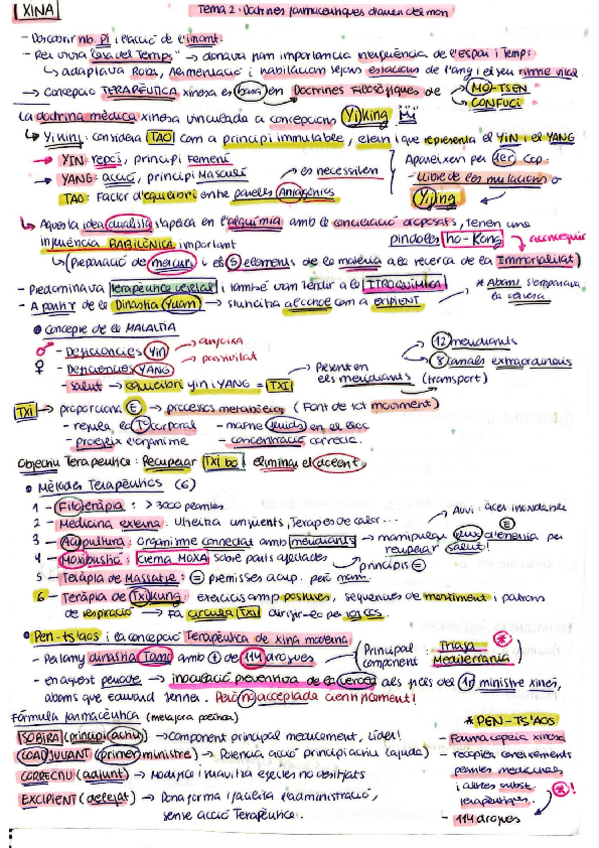 XINA
Tema 2: Doctrines farmacèutiques d'arreu del món
- Descobrir nb. Pi i l'acció de l'imant.
- Per viure "Casa del Temps" → donava gran importància influència de l'espai i Temps
↳ adaptava Roba, Alimentació i habitació segons estacions de l'any i el seu ritme vital.
→ Concepció TERAPÈUTICA xinesa es basa en Doctrines Filosòfiques de
→ MO-TSEN
→ CONFUCI
La doctrina mèdica xinesa vinculada a concepcions Yiking
↳ Yiking: considera TAO com a principi immutable, etern i que representa el YIN i el YANG
→ YIN: repòs, principi Femení
→ YANG: acció, principi Masculí
→ es necessiten
TAO: Factor d'equilibri entre parelles Antagònics
Apareixen per 1er cop:
- Llibre de les mutacions o
Yiking
↳ Aquesta idea dualista s'aplica en l'alquímia amb la conciliació d'oposats, tenen una
influència BABILÒNICA important
píndoles Ho-Kong → aconseguir
↳ (Preparació de mercuri i els 5 elements de la matèria a la recerca de la Immortalitat)
- Predominava Terapèutica vegetal i també van tendir a la IATROQUÍMICA
- A partir de la Dinastia Yuam → s'utilitza alcohol com a excipient
* Abans s'emprava
la cervesa
• Concepte de la MALALTIA
♂ - Deficiències Yin
♀ - Deficiències YANG → passivitat
- salut → equilibri yin i YANG = TXI
→ Present en
els meridiants (transport)
→ 12 meridiants
→ 8 canals extraordinaris
TXI → proporciona E → processos metabòlics (Font de tot moviment)
- regula la Tª corporal
- manté fluids en el lloc
- protegir l'organime
- concentració correcta.
Objectiu Terapèutic: Recuperar TXI bo i eliminar el dolent.
• Mètodes Terapèutics (6)
1 - Fitoteràpia: > 3000 plantes
2 - Medicina externa: Utilitza ungüents, Teràpies de calor...
→ Avui: acer inoxidable
3 - Acupultura: Organisme connectat amb meridiants → manipulen flux d'energia per
E
recuperar salut!
4 - Moxibustió: Crema MOXA sobre parts afectades
→ principis =
5 - Teràpia de Massatge: = premisses acup. però mans.
6 - Teràpia de Txikung: exercicis amb postures, seqüències de moviment i patrons
de respiració → Fa circular TXI dirigir-lo pel cos.
• Pen-ts'aos i la concepció Terapèutica de xina moderna
- Pel any dinastia Tang amb + de 114 drogues
Principal
component
Triaga
Mediterrània
*
- en aquest període → inoculació preventiva de la verola als fills del 1r ministre xinès,
abans que Edward Jenner. Però no acceptada científicament!
Fórmula farmacèutica (metàfora poètica)
SOBIRÀ (principi actiu) → Component principal medicament, líder!
COADJUVANT (primer ministre) → Potencia acció principi actiu (ajuda)
CORRECTIU (adjunt) → Modifica i inactiva efectes no desitjats
EXCIPIENT (delegat) → Dona forma i facilita l'administració,
sense acció Terapèutica.
* PEN-TS'AOS
- Farmacopea xinesa
- recopila coneixements
plantes medicinals
i altres subst.
Terapèutiques.
*!
- 114 drogues